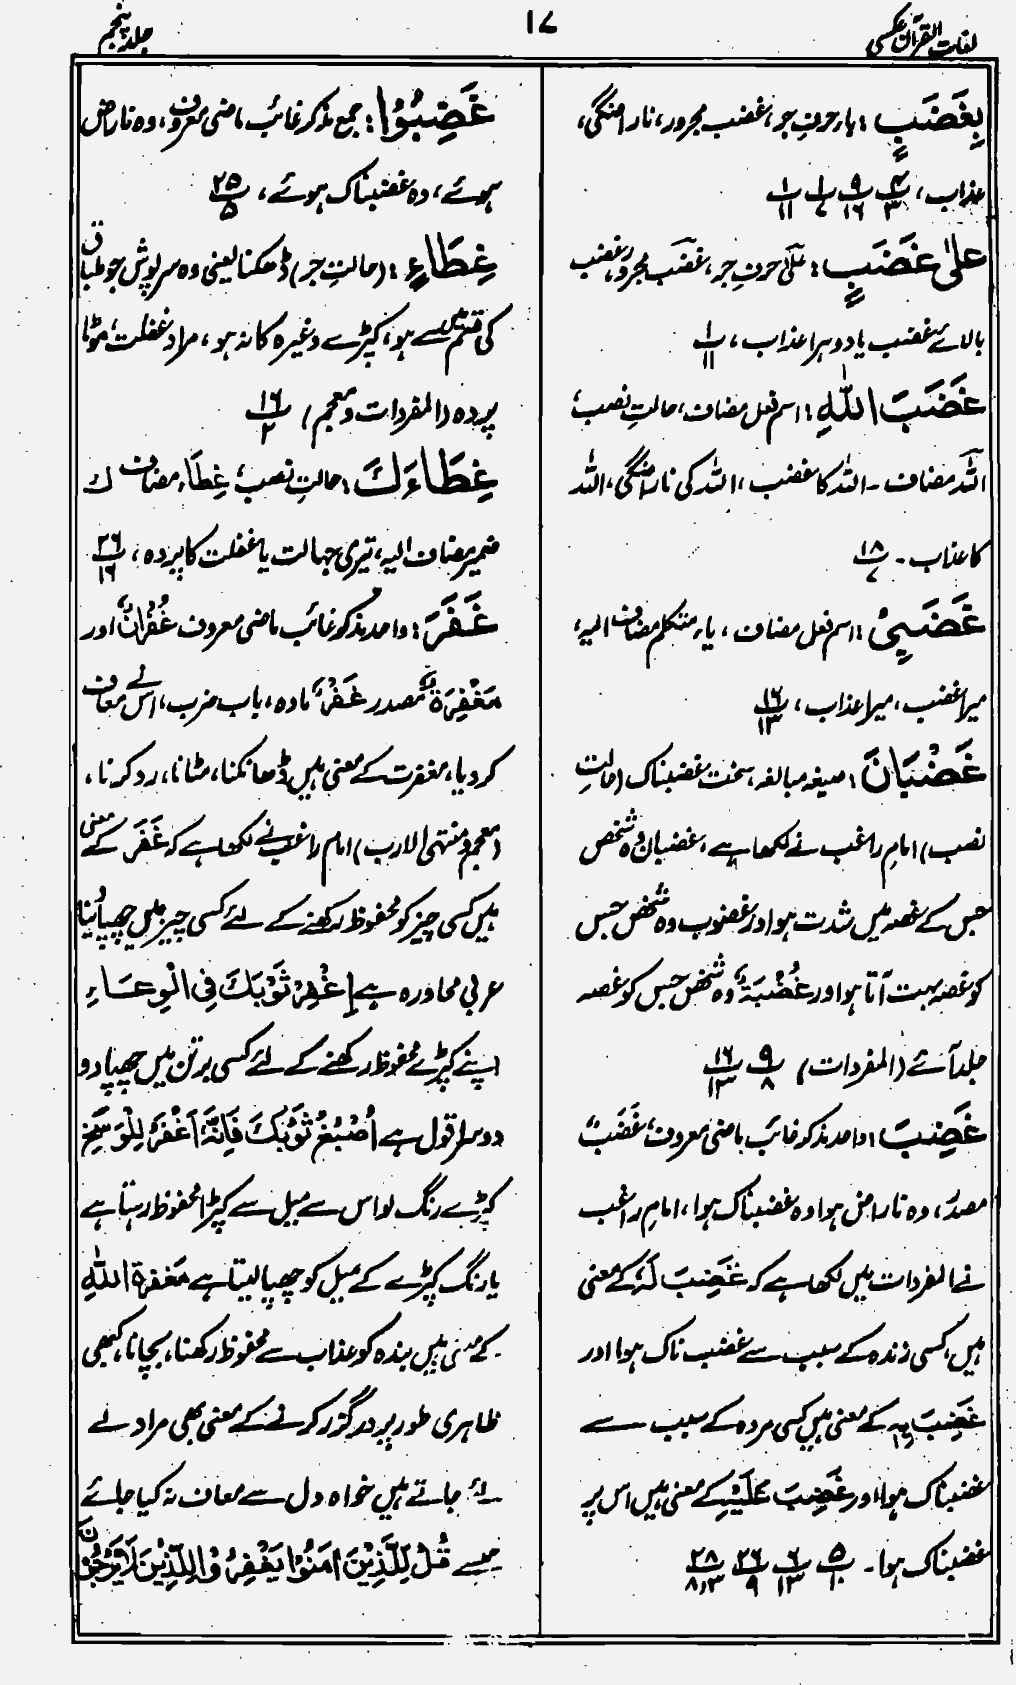 لغات القرآن عکسی
۱۷
جلد پنجم
بِغَضَبٍ : بار حرفِ جر، غضب مجرور، ناراضگی،
عذاب، ۴/۳ ۹/۱۶ ۱/۷ ۱/۱۱
عَلٰی غَضَبٍ : عَلٰی حرفِ جر، غَضَب مجرور، غضب
بالائے غضب یا دوہرا عذاب، ۱/۱۱
غَضَبَ اللّٰهِ : اسم فعل مضاف، حالتِ نصب،
اللّٰہ مضاف۔ اللّٰہ کا غضب، اللّٰہ کی ناراضگی، اللّٰہ
کا عذاب۔ ۱۸/۷
غَضَبِیْ : اسم فعل مضاف، یاء متکلم مضاف الیہ،
میرا غضب، میرا عذاب، ۱۶/۱۳
غَضْبَانَ : صیغہ مبالغہ، سخت غضبناک (حالتِ
نصب) امامِ راغب نے لکھا ہے، غضبان وہ شخص
جس کے غصہ میں شدت ہو اور غضوب وہ شخص جس
کو غصہ بہت آتا ہو اور غُضُبَّةٌ وہ شخص جس کو غصہ
جلد آئے (المفردات) ۹/۸ ۱۶/۱۳
غَضِبَ : واحد مذکر غائب ماضی معروف، غَضَبٌ
مصدر، وہ ناراض ہوا وہ غضبناک ہوا، امامِ راغب
نے المفردات میں لکھا ہے کہ غَضِبَ لَهٗ کے معنی
ہیں، کسی زندہ کے سبب سے غضب ناک ہوا اور
غَضِبَ بِهٖ کے معنی ہیں کسی مردہ کے سبب سے
غضبناک ہوا، اور غَضِبَ عَلَيْهِ کے معنی ہیں اس پر
غضبناک ہوا۔ ۵/۱۰ ۶/۱۳ ۲۶/۹ ۲۸/۸،۳
غَضِبُوْا : جمع مذکر غائب ماضی معروف، وہ ناراض
ہوئے، وہ غضبناک ہوئے، ۲۵/۵
غِطَاءٍ : (حالتِ جر) ڈھکنا یعنی وہ سرپوش جو طباق
کی قسم میں سے ہو، کپڑے وغیرہ کا نہ ہو، مراد غفلت، موٹا
پردہ (المفردات و معجم) ۱۶/۲
غِطَاءَكَ : حالتِ نصب، غِطَاء مضاف ك
ضمیر مضاف الیہ، تیری جہالت یا غفلت کا پردہ، ۲۶/۱۶
غَفَرَ : واحد مذکر غائب ماضی معروف غُفْرَانٌ اور
مَغْفِرَةٌ مصدر غَفْرٌ مادہ، باب ضرب، اس نے معاف
کر دیا، مغفرت کے معنی ہیں ڈھانکنا، مٹانا، رد کرنا،
(معجم و منتہی الارب) امام راغب نے لکھا ہے کہ غَفَرَ کے معنی
ہیں کسی چیز کو محفوظ رکھنے کے لئے کسی چیز میں چھپا دینا
عربی محاورہ ہے اِغْفِرْ ثَوْبَكَ فِی الْوِعَاءِ
اپنے کپڑے محفوظ رکھنے کے لئے کسی برتن میں چھپا دو
دوسرا قول ہے اُصْبُغْ ثَوْبَكَ فَاِنَّهٗ اَغْفَرُ لِلْوَسَخِ
کپڑے رنگ لو اس سے میل سے کپڑا محفوظ رہتا ہے
یا رنگ کپڑے کے میل کو چھپا لیتا ہے مَغفرة اللّٰهِ
کے معنی ہیں بندہ کو عذاب سے محفوظ رکھنا، بچانا، کبھی
ظاہری طور پر درگزر کرنے کے معنی بھی مراد لے
لئے جاتے ہیں خواہ دل سے معاف نہ کیا جائے
جیسے قُلْ لِلَّذِيْنَ اٰمَنُوْا يَغْفِرُوْا لِلَّذِيْنَ لَا يَرْجُوْنَ